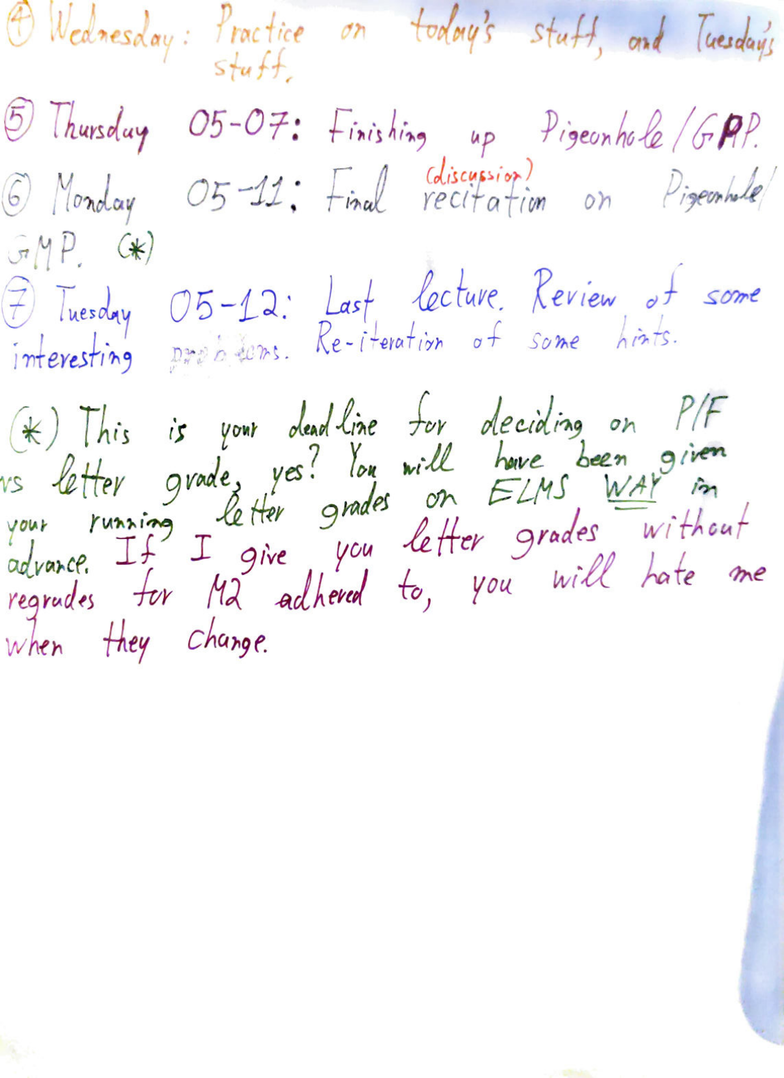 ④ Wednesday: Practice on today's stuff, and Tuesday's
stuff.
⑤ Thursday 05-07: Finishing up Pigeonhole/GPP.
(discussion)
⑥ Monday 05-11: Final recitation on Pigeonhole/
GMP. (*)
⑦ Tuesday 05-12: Last lecture. Review of some
interesting problems. Re-iteration of some hints.
(*) This is your deadline for deciding on P/F
vs letter grade, yes? You will have been given
your running letter grades on ELMS WAY in
advance. If I give you letter grades without
regrades for M2 adhered to, you will hate me
when they change.